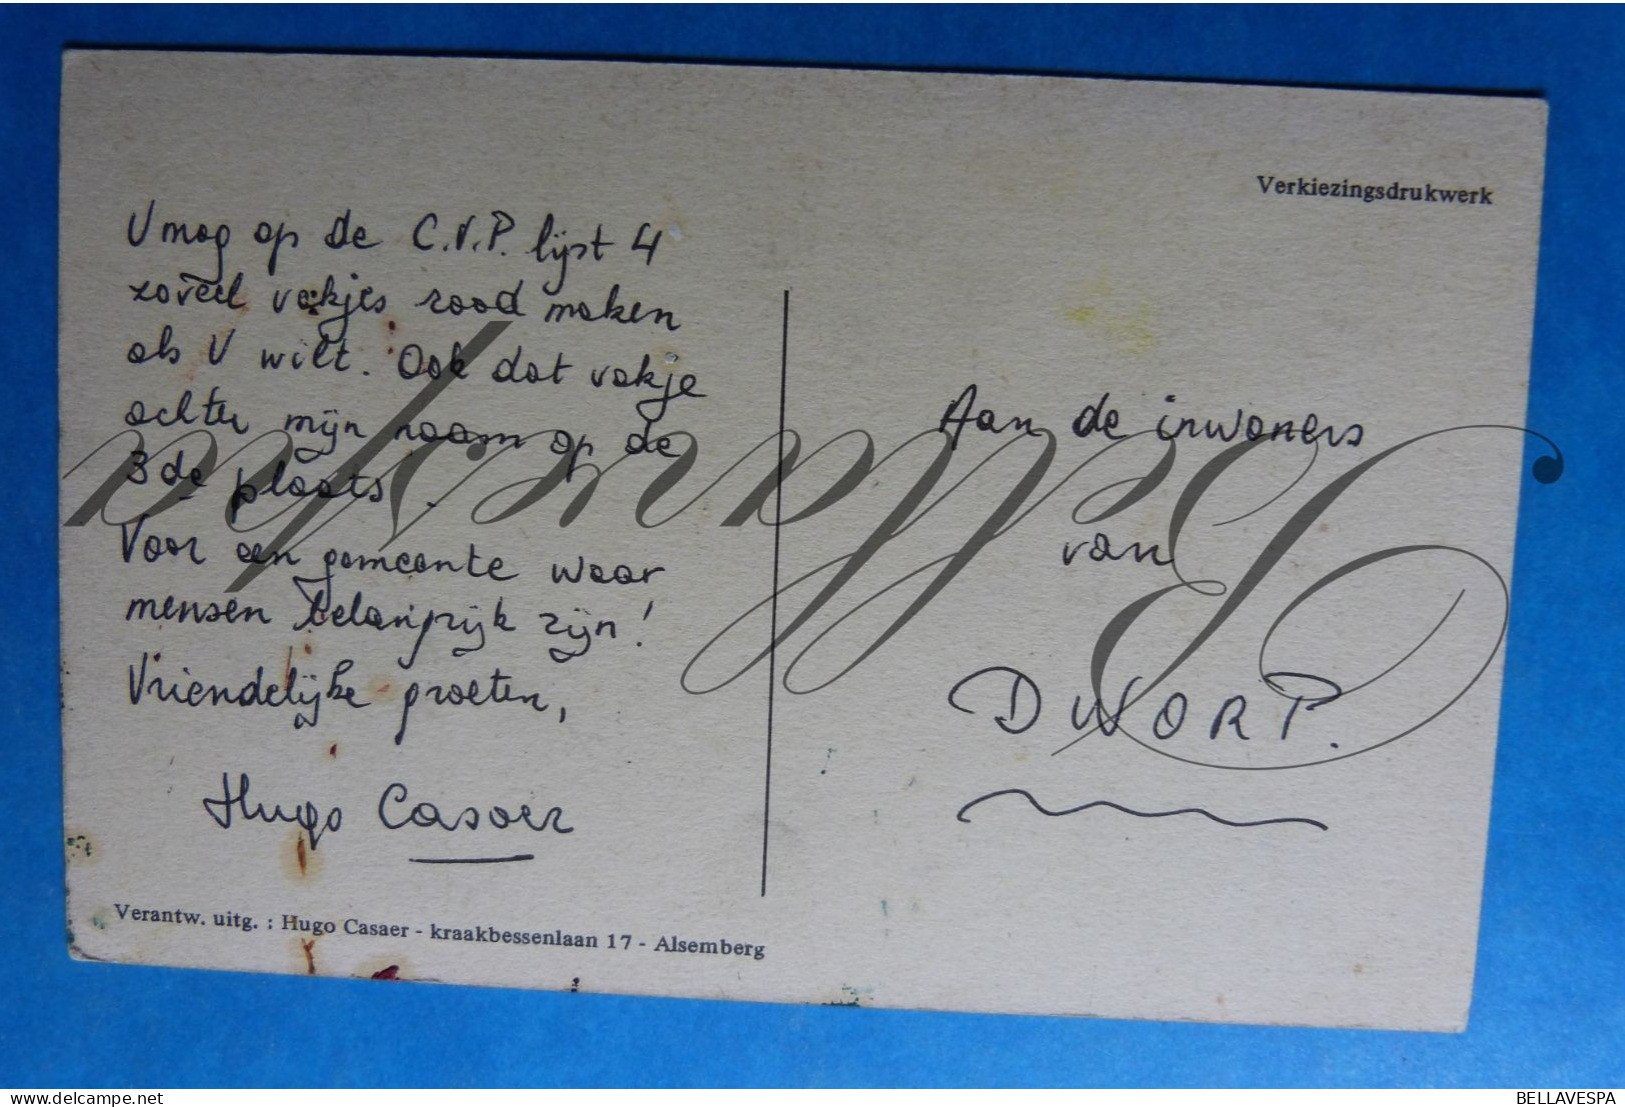 Verkiezingsdrukwerk
U mag op de C.V.P. lijst 4
zoveel vakjes rood maken
als U wilt. Ook dat vakje
achter mijn naam op de
3de plaats.
Voor een gemeente waar
mensen belangrijk zijn!
Vriendelijke groeten,
Hugo Casaer
Verantw. uitg. : Hugo Casaer - kraakbessenlaan 17 - Alsemberg
Aan de inwoners
van
DWORP.
Bellavespa
delcampe.net
BELLAVESPA